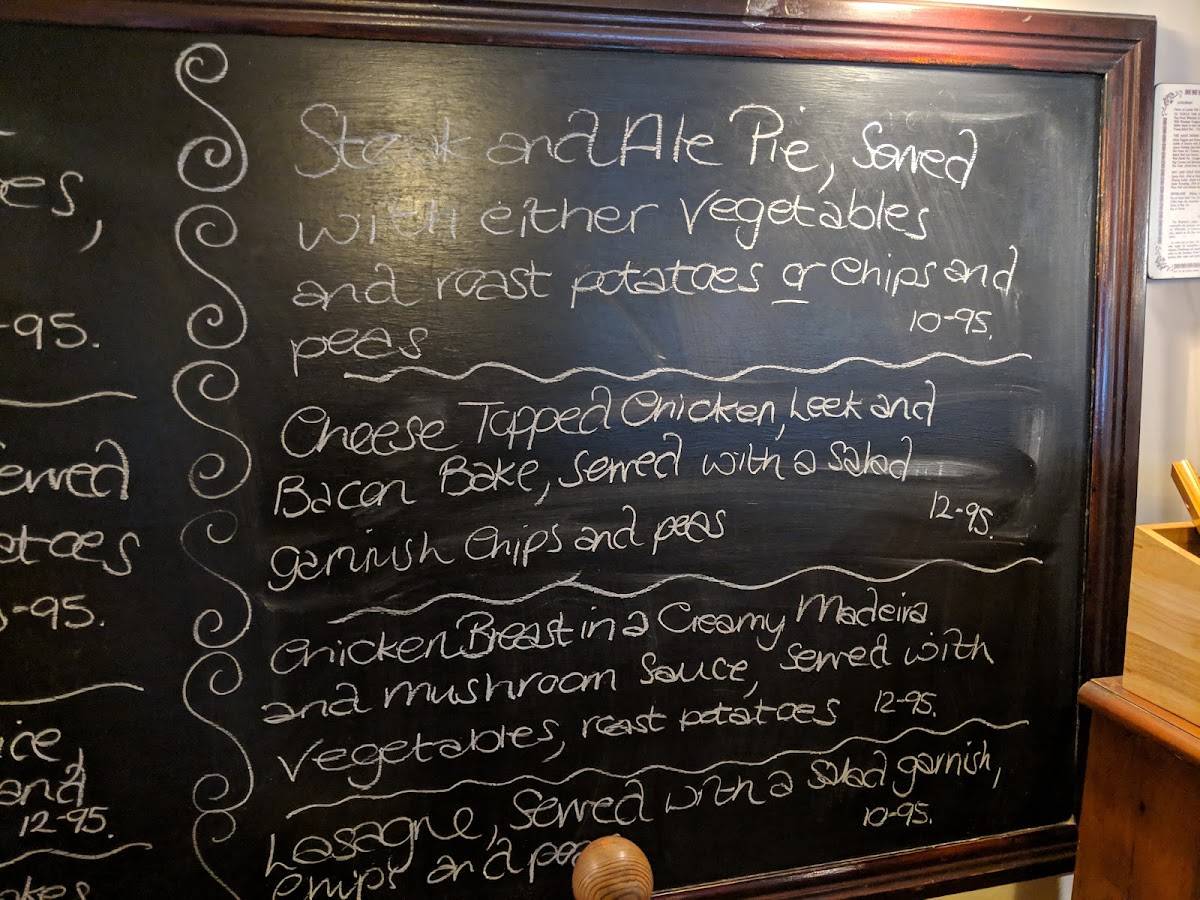 es,
-95.
erved
atoes
-95.
ice,
and
12-95.
akes
Steak and Ale Pie, Served
with either Vegetables
and roast potatoes or Chips and
peas
10-95.
Cheese Topped Chicken, Leek and
Bacon Bake, Served with a Salad
garnish Chips and peas
12-95.
Chicken Breast in a Creamy Madeira
and mushroom Sauce, served with
Vegetables, roast potatoes 12-95.
Lasagne, Served with a Salad garnish,
Chips and peas
10-95.